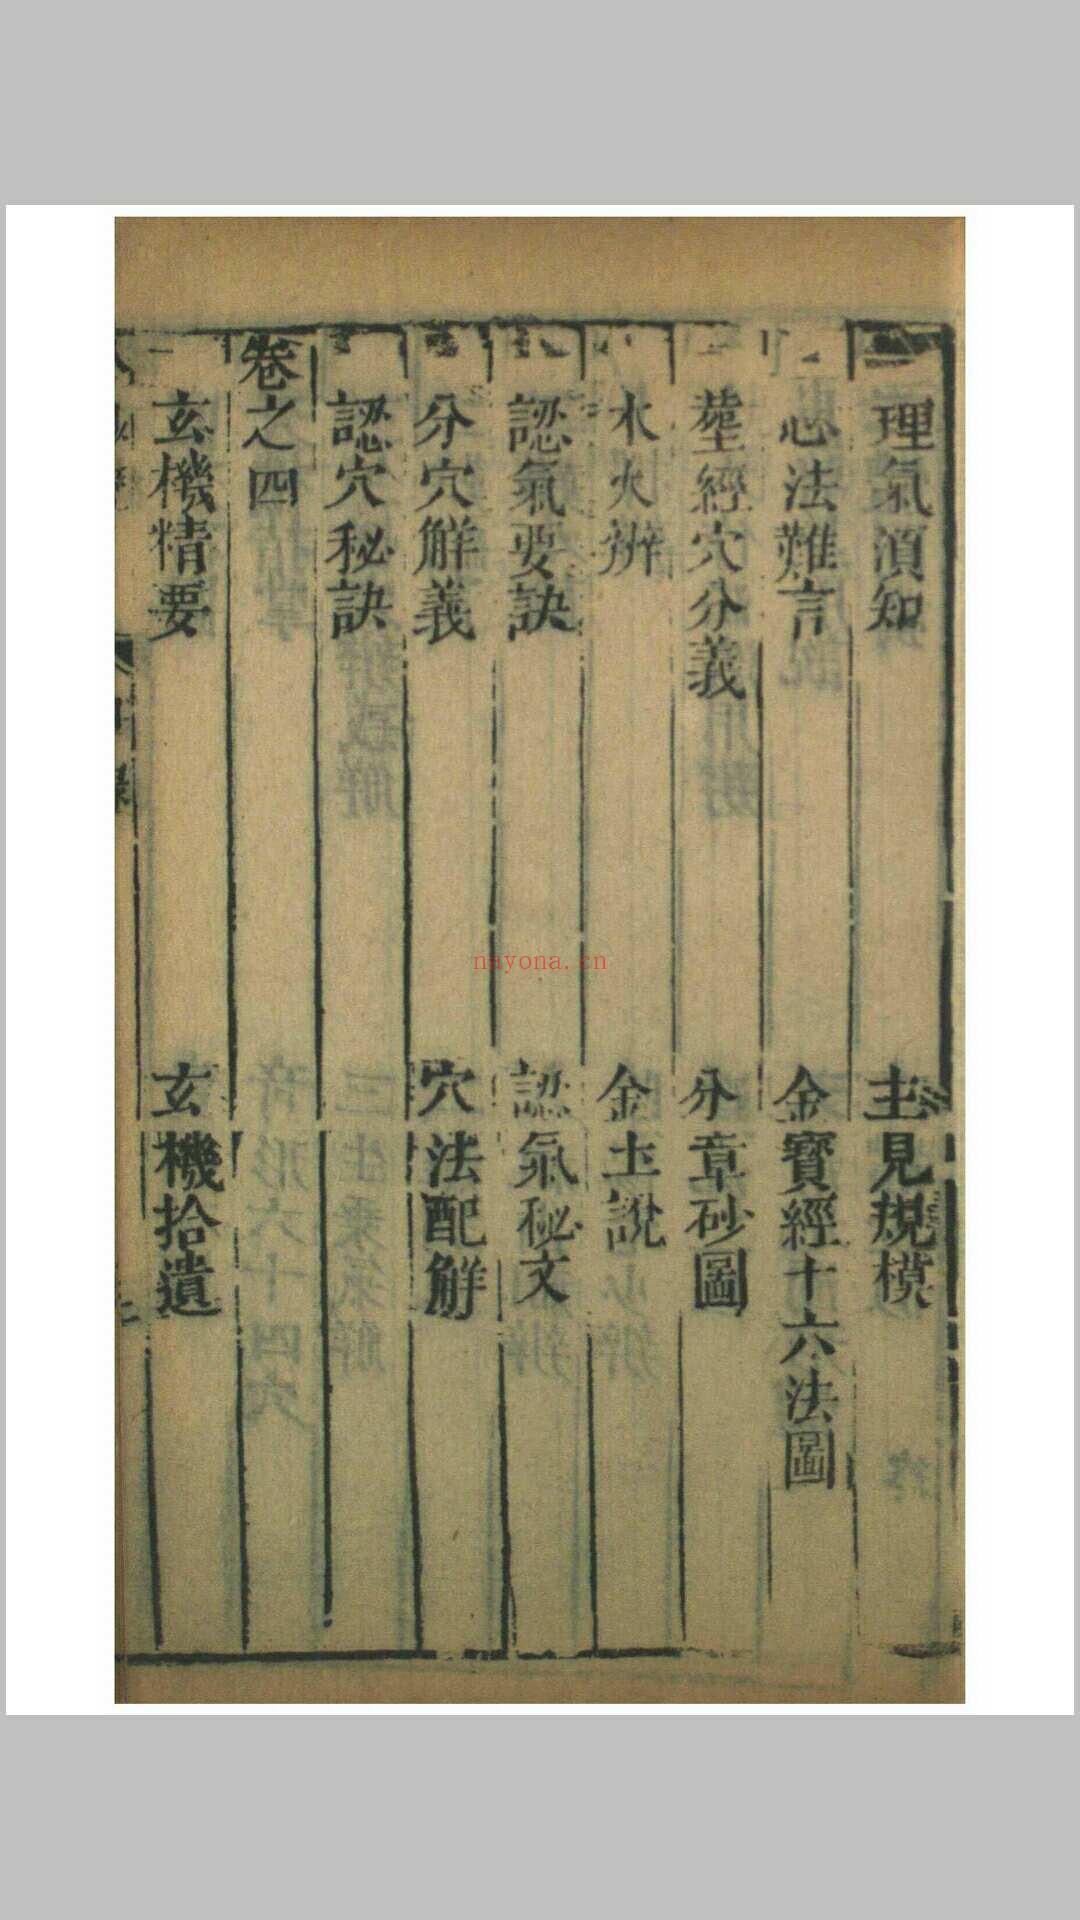 理氣須知 主見規模
心法難言 金寶經十六法圖
葬經穴分義 分章砂圖
水火辨 金土說
認氣要訣 認氣秘文
分穴解義 穴法配解
認穴秘訣
卷之四
玄機精要 玄機拾遺
nayona.cn